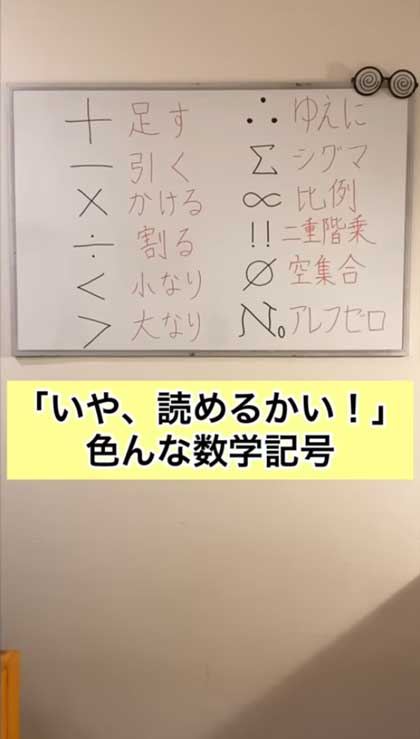 ＋ 足す
− 引く
× かける
÷ 割る
< 小なり
> 大なり
∴ ゆえに
Σ シグマ
∝ 比例
!! 二重階乗
∅ 空集合
ℵ₀ アレフゼロ
「いや、読めるかい！」
色んな数学記号